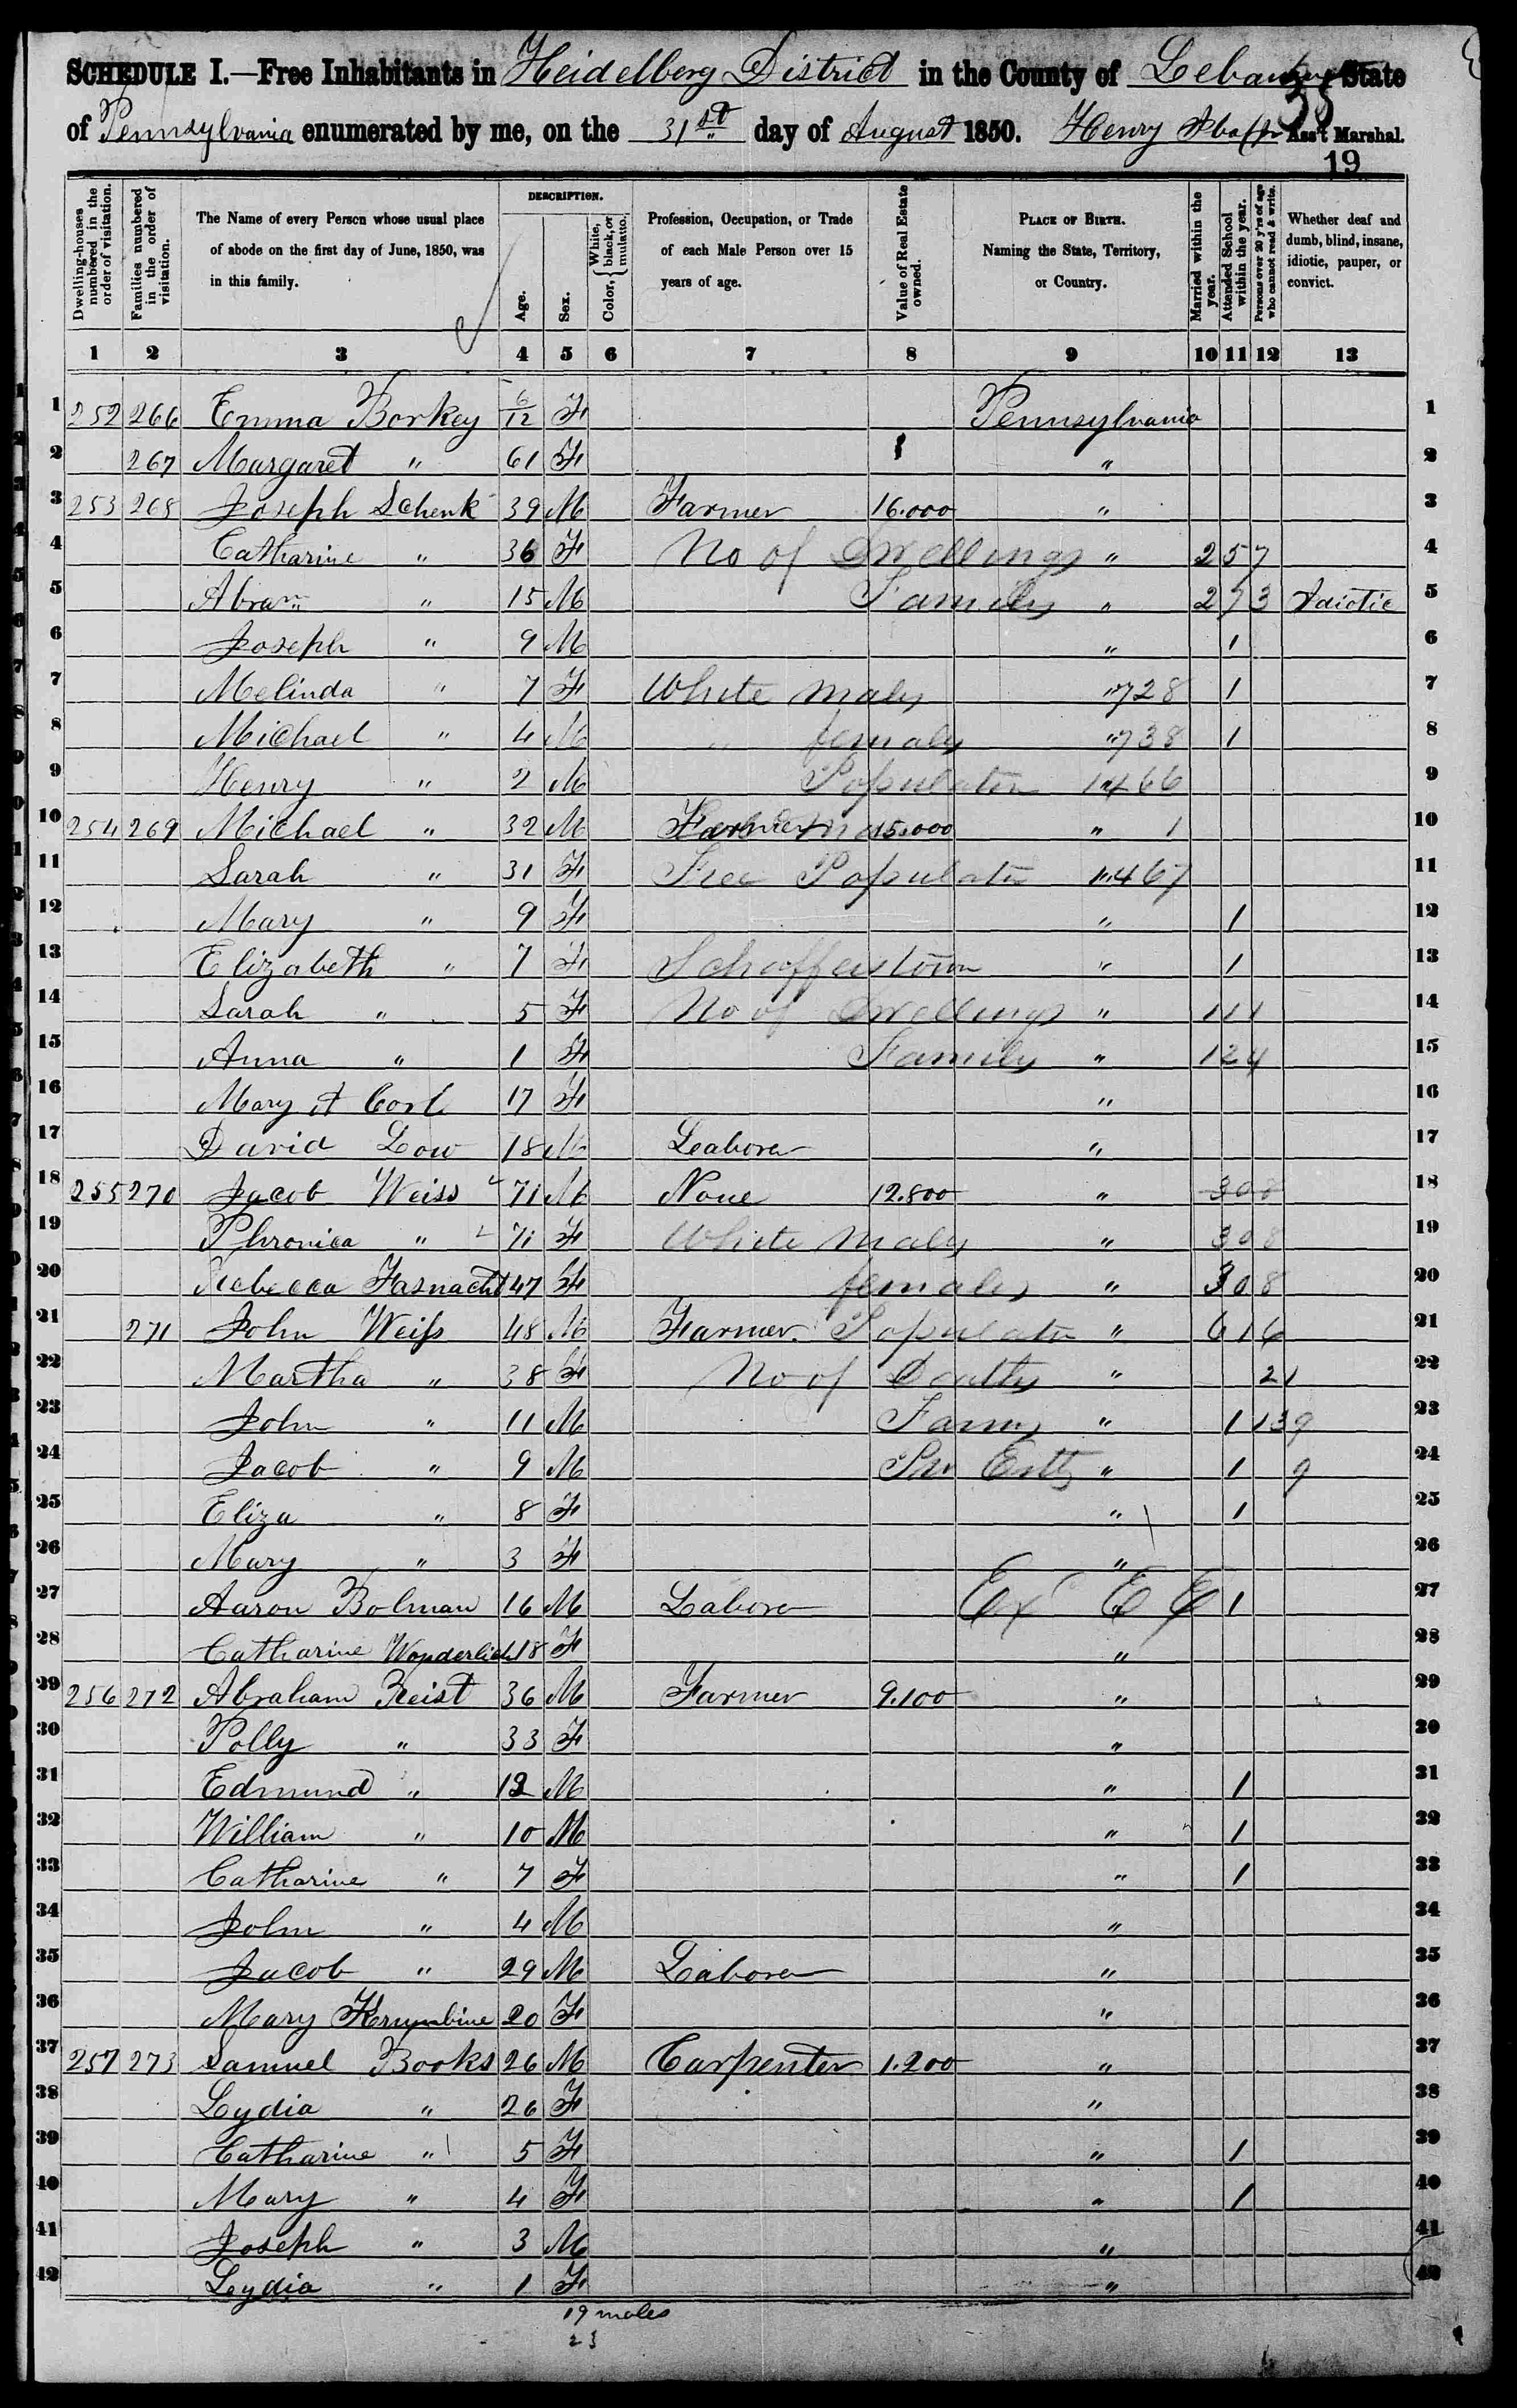 SCHEDULE I.—Free Inhabitants in Heidelberg District in the County of Lebanon State
of Pennsylvania enumerated by me, on the 31st day of August 1850. Henry Ass't Marshal.
35
19
Dwelling-houses numbered in the order of visitation.
Families numbered in the order of visitation.
The Name of every Person whose usual place of abode on the first day of June, 1850, was in this family.
DESCRIPTION.
Age.
Sex.
Color, { White, black, or mulatto.
Profession, Occupation, or Trade of each Male Person over 15 years of age.
Value of Real Estate owned.
PLACE OF BIRTH. Naming the State, Territory, or Country.
Married within the year.
Attended School within the year.
Persons over 20 y'rs of age who cannot read & write.
Whether deaf and dumb, blind, insane, idiotic, pauper, or convict.
1 2 3 4 5 6 7 8 9 10 11 12 13
1 252 266 Emma Borkey 6/12 F Pennsylvania 1
2 267 Margaret " 61 F " 2
3 253 268 Joseph Schenk 39 M Farmer 16.000 " 3
4 Catharine " 36 F No of Dwellings " 257 4
5 Abram " 15 M Family " 273 Idiotic 5
6 Joseph " 9 M " 1 6
7 Melinda " 7 F White males " 728 1 7
8 Michael " 4 M " females " 738 1 8
9 Henry " 2 M Population 1466 9
10 254 269 Michael " 32 M Farmer 15.000 " 1 10
11 Sarah " 31 F Free Population 1467 11
12 Mary " 9 F " 1 12
13 Elizabeth " 7 F Schaefferstown " 1 13
14 Sarah " 5 F No of Dwellings " 111 14
15 Anna " 1 F Family " 124 15
16 Mary A Corl 17 F " 16
17 David Dow 18 M Labora " 17
18 255 270 Jacob Weiss 71 M None 12.800 " 308 18
19 Phronica " 71 F White males " 308 19
20 Rebecca Fasnacht 47 F females " 308 20
21 271 John Weiss 48 M Farmer Population " 616 21
22 Martha " 38 F No of Deaths " 21 22
23 John " 11 M Farms " 1 139 23
24 Jacob " 9 M " 1 9 24
25 Eliza " 8 F " 1 25
26 Mary " 3 F " 26
27 Aaron Bolman 16 M Labora Ex E E 1 27
28 Catharine Wonderlich 18 F " 28
29 256 272 Abraham Reist 36 M Farmer 9.100 " 29
30 Polly " 33 F " 30
31 Edmund " 12 M " 1 31
32 William " 10 M " 1 32
33 Catharine " 7 F " 1 33
34 John " 4 M " 34
35 Jacob " 29 M Labora " 35
36 Mary Krumbine 20 F " 36
37 257 273 Samuel Books 26 M Carpenter 1.200 " 37
38 Lydia " 26 F " 38
39 Catharine " 5 F " 1 39
40 Mary " 4 F " 1 40
41 Joseph " 3 M " 41
42 Lydia " 1 F " 42
19 males
23